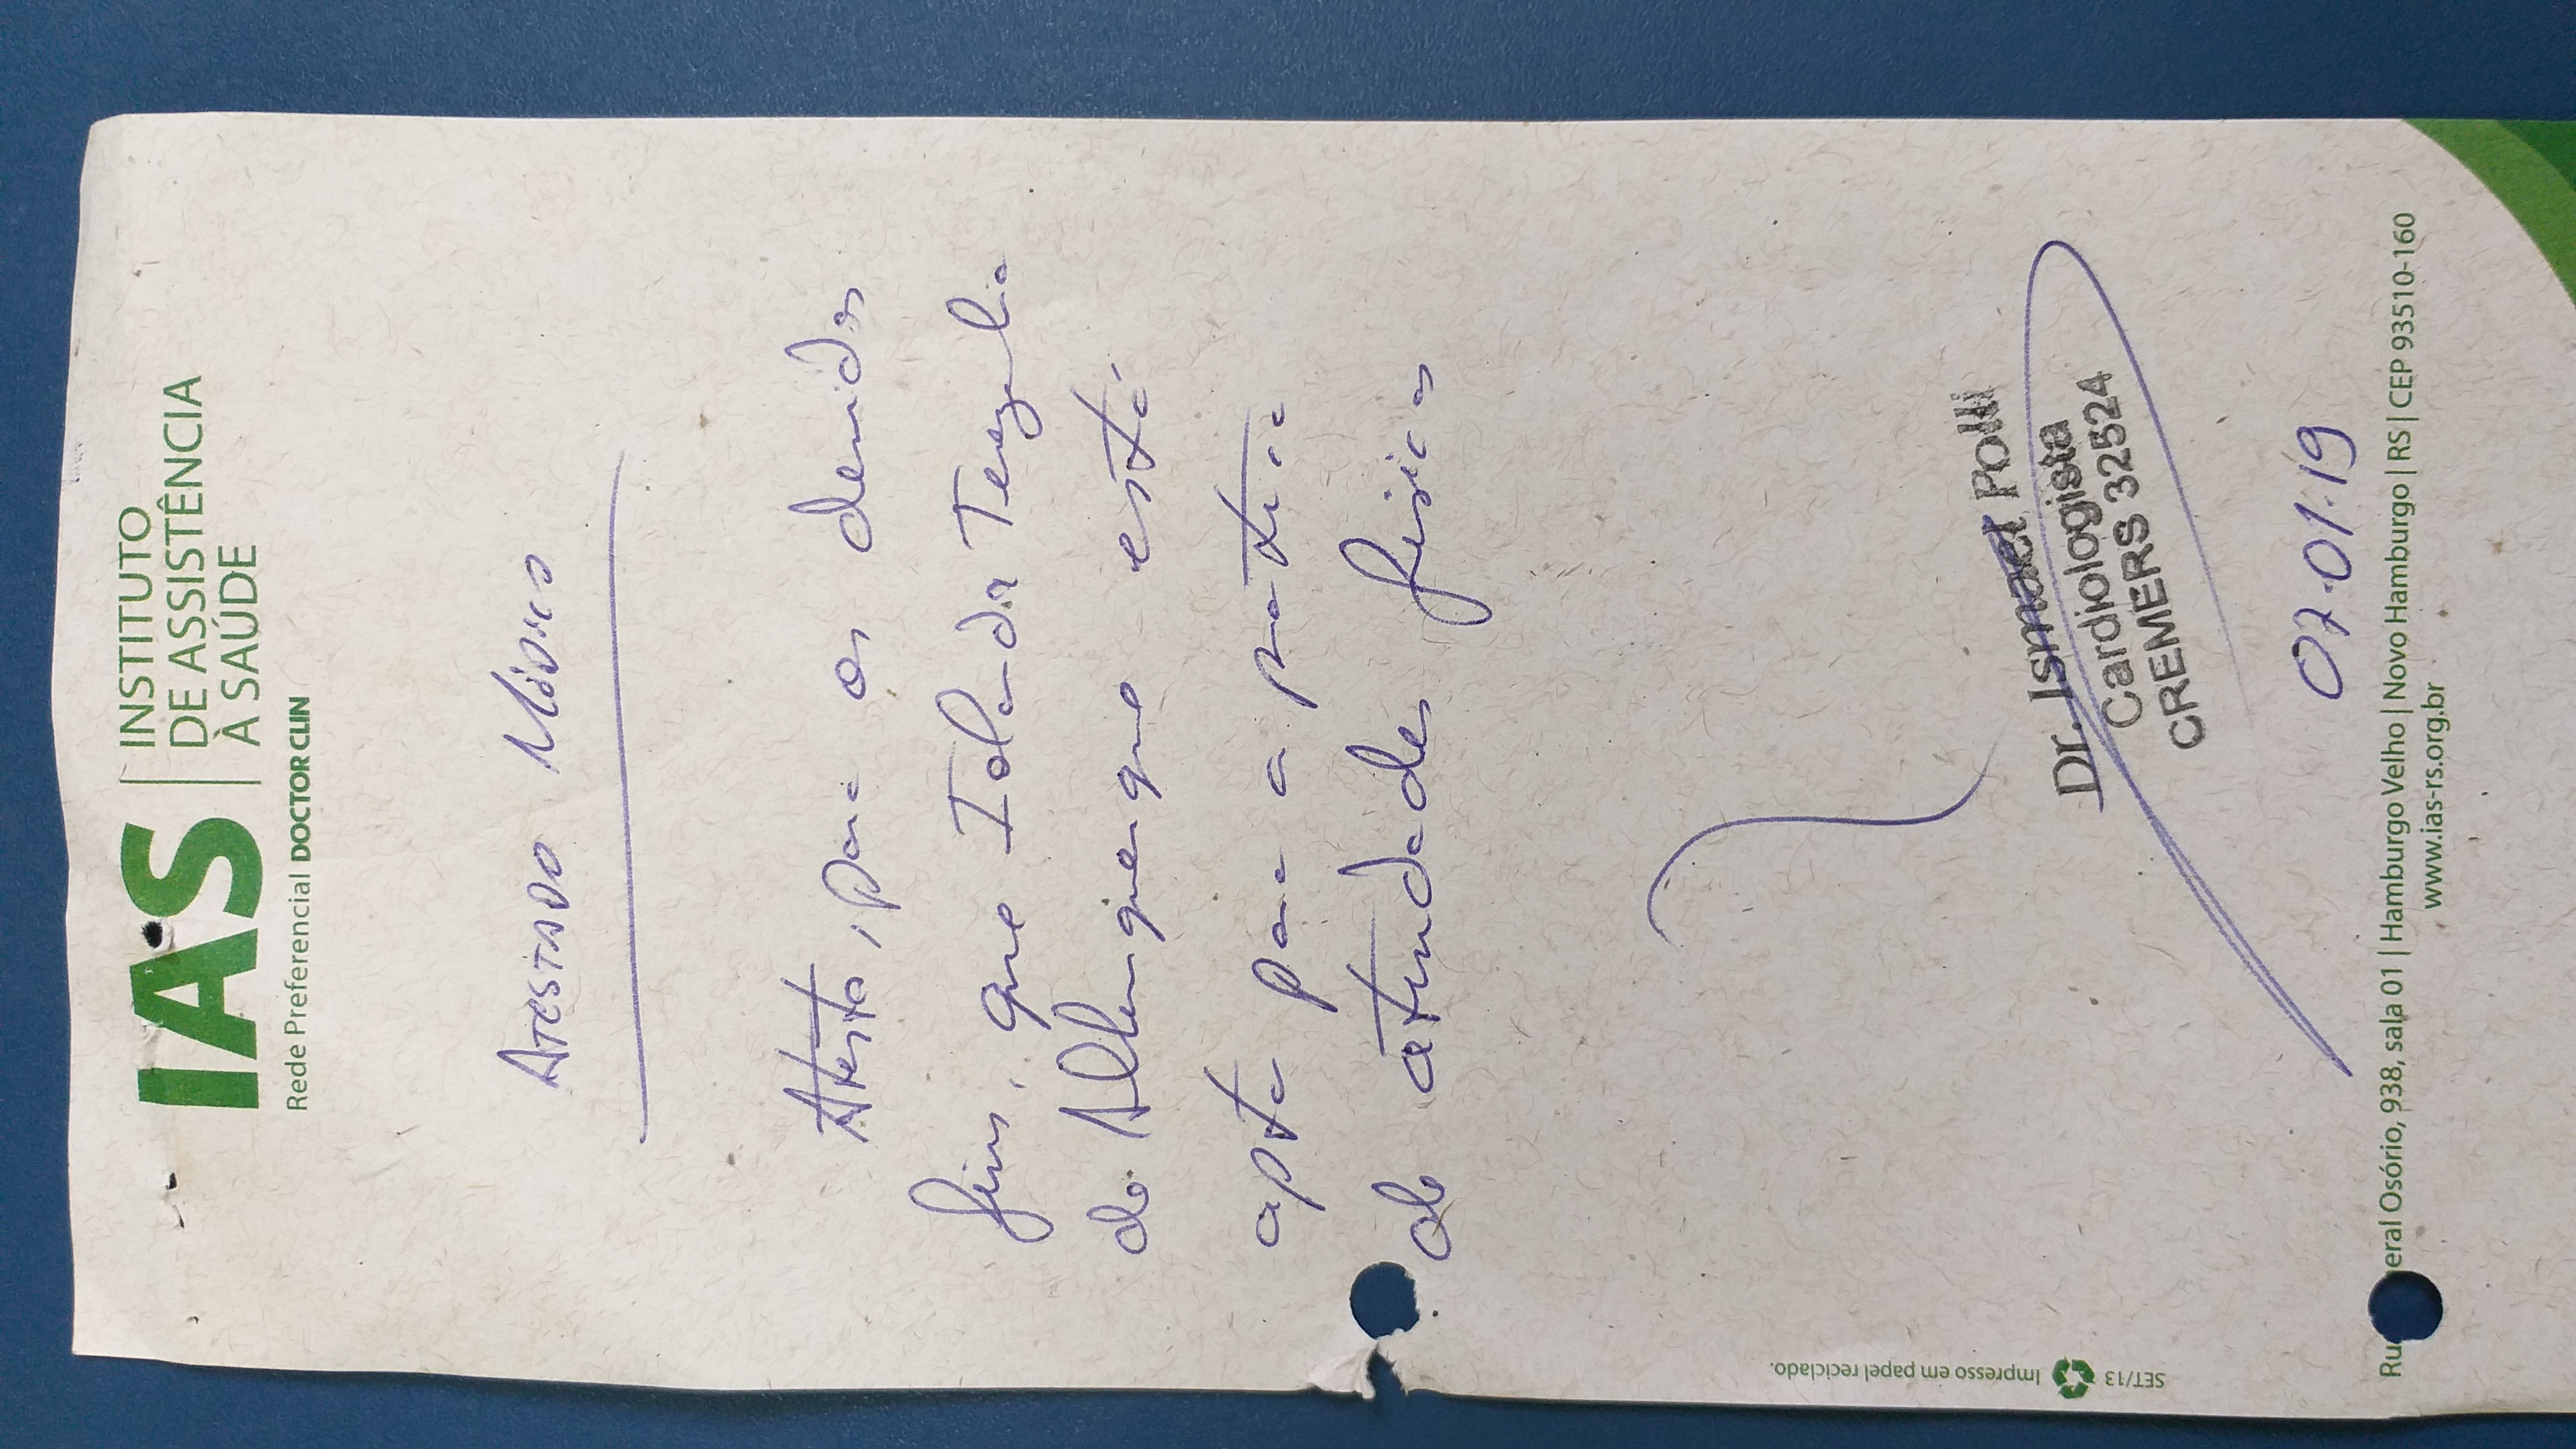 IAS | INSTITUTO
DE ASSISTÊNCIA
À SAÚDE
Rede Preferencial DOCTOR CLIN
Atestado Médico
Atesto, para os devidos
fins, que Iolanda Terezinha
de Albuquerque está
apta para a prática
de atividades físicas
Dr. Ismael Polli
Cardiologista
CREMERS 32524
07.01.19
eral Osório, 938, sala 01 | Hamburgo Velho | Novo Hamburgo | RS | CEP 93510-160
www.ias-rs.org.br
SET/13 Impresso em papel reciclado.